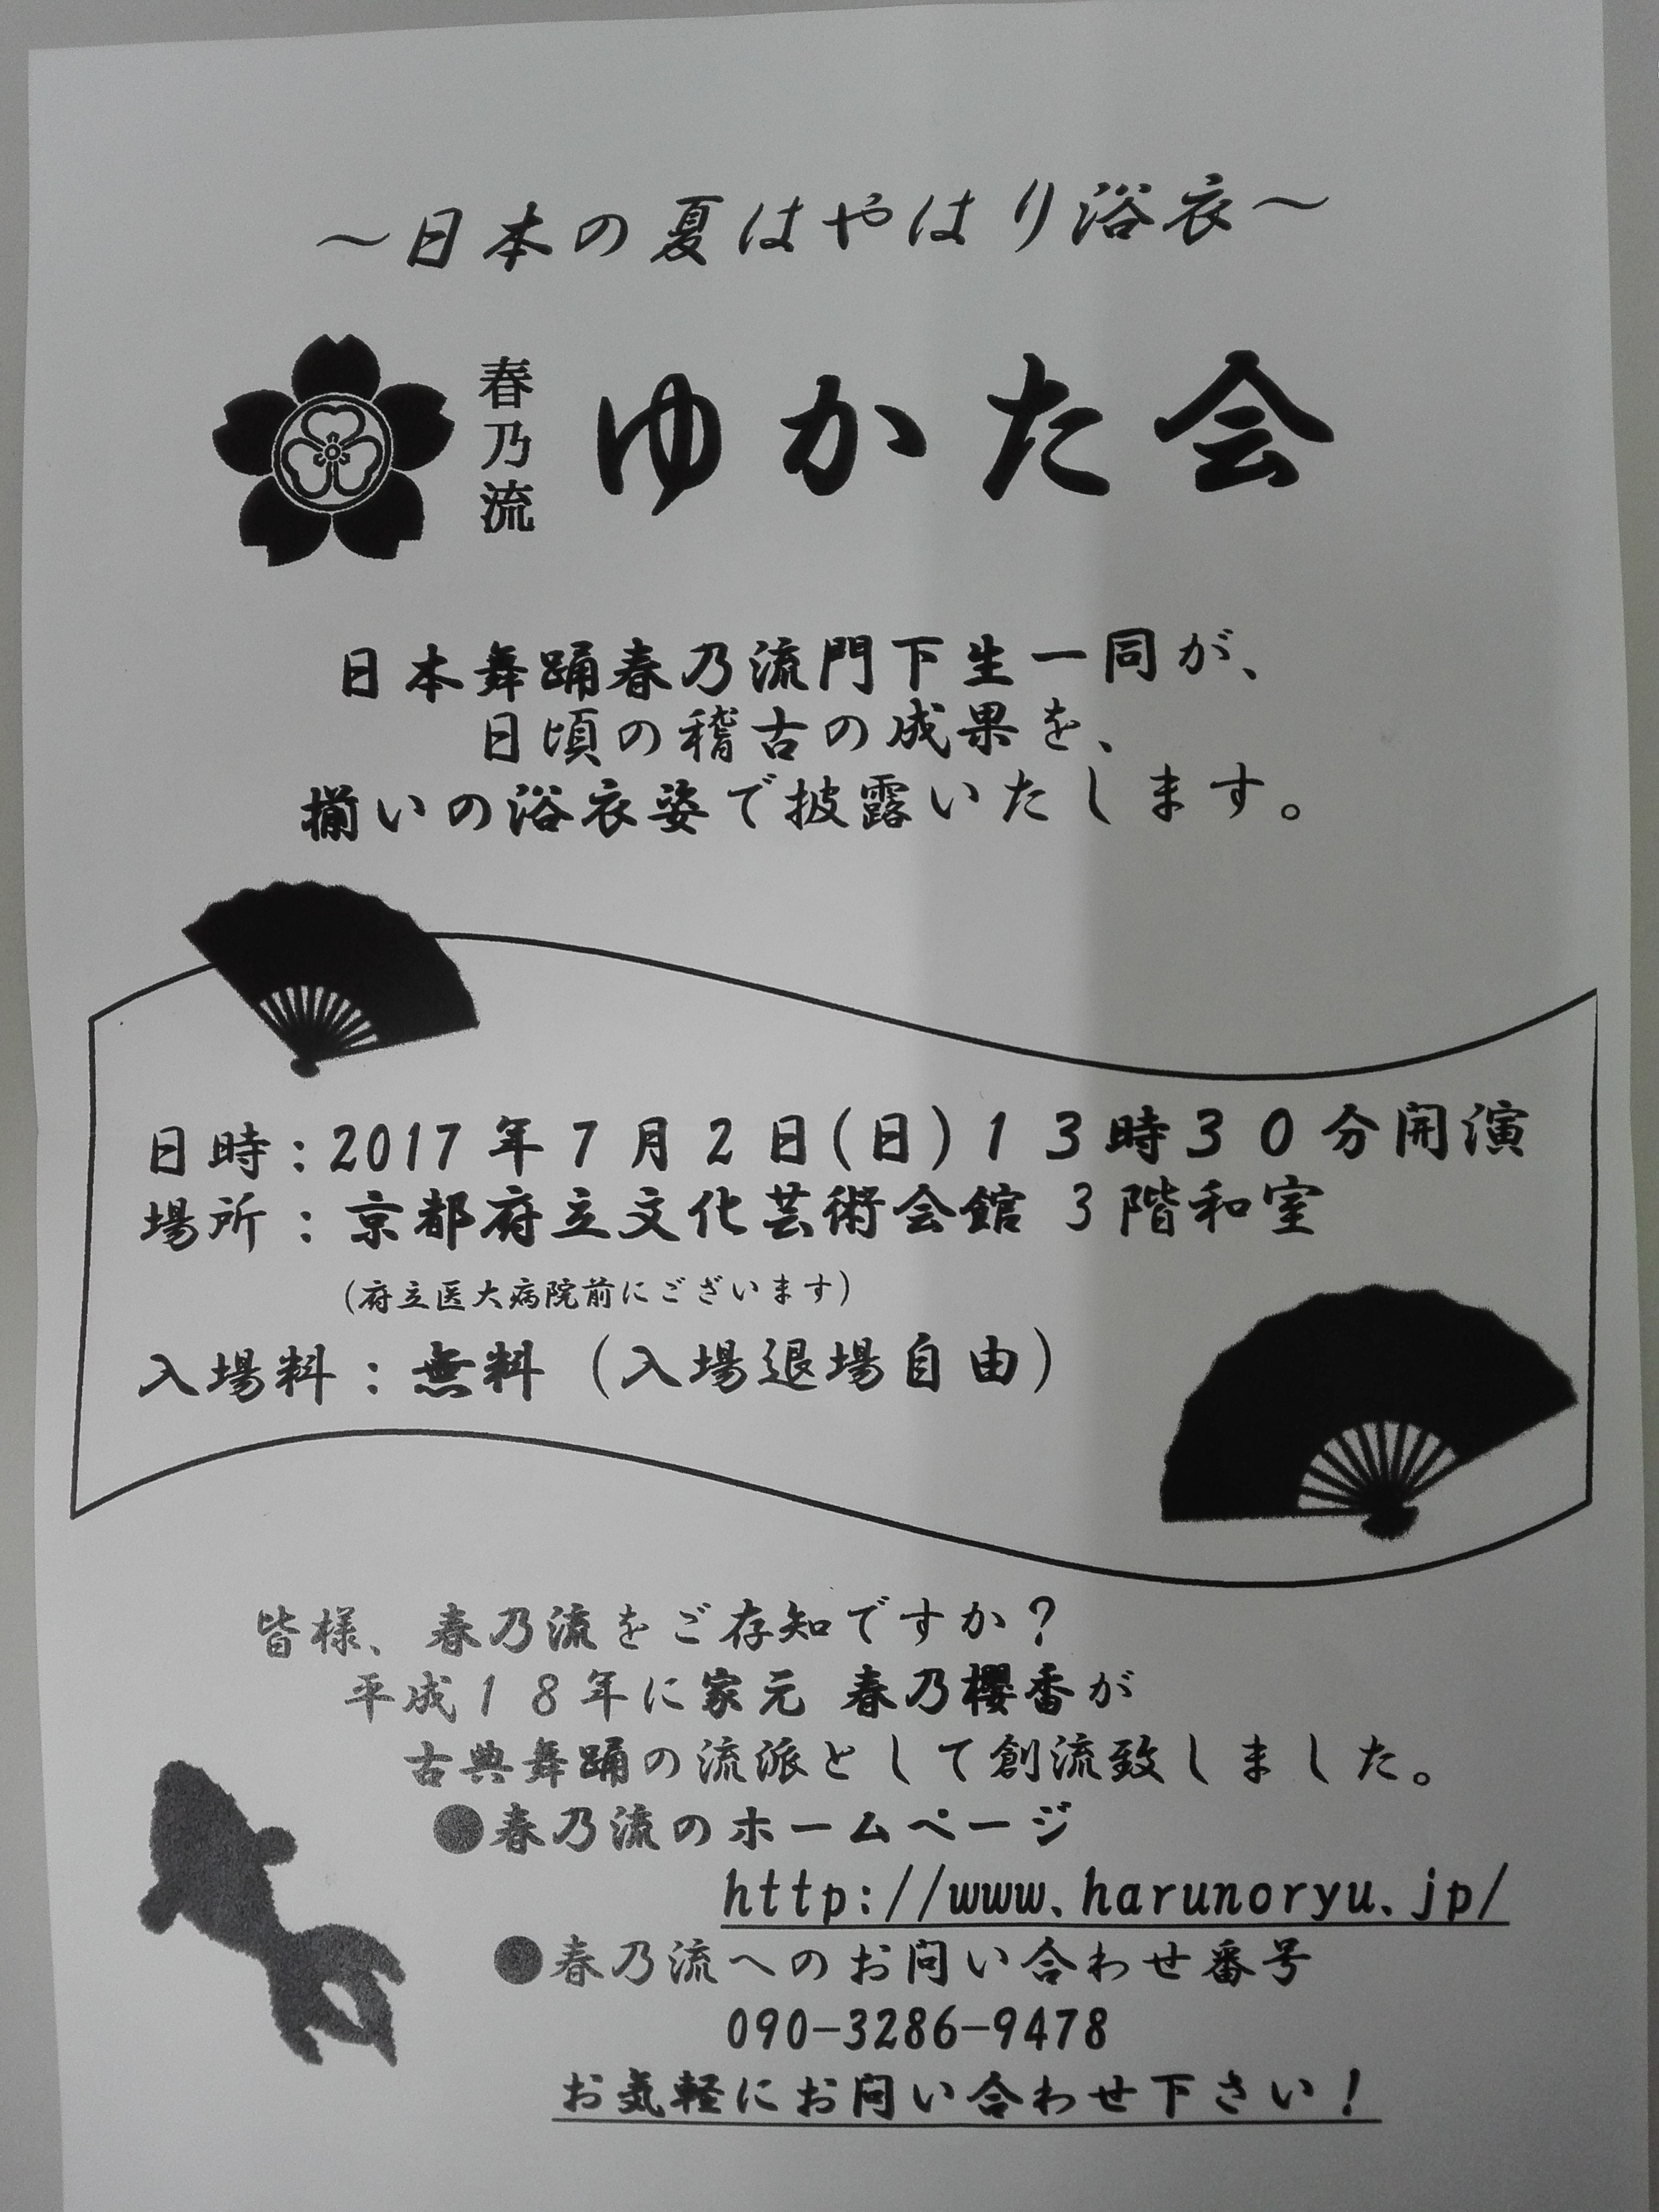 ～日本の夏はやはり浴衣～
春乃流
ゆかた会
日本舞踊春乃流門下生一同が、
日頃の稽古の成果を、
揃いの浴衣姿で披露いたします。
日時：2017年7月2日(日)13時30分開演
場所：京都府立文化芸術会館 3階和室
(府立医大病院前にございます)
入場料：無料（入場退場自由）
皆様、春乃流をご存知ですか？
平成18年に家元 春乃櫻香が
古典舞踊の流派として創流致しました。
●春乃流のホームページ
http://www.harunoryu.jp/
●春乃流へのお問い合わせ番号
090-3286-9478
お気軽にお問い合わせ下さい！